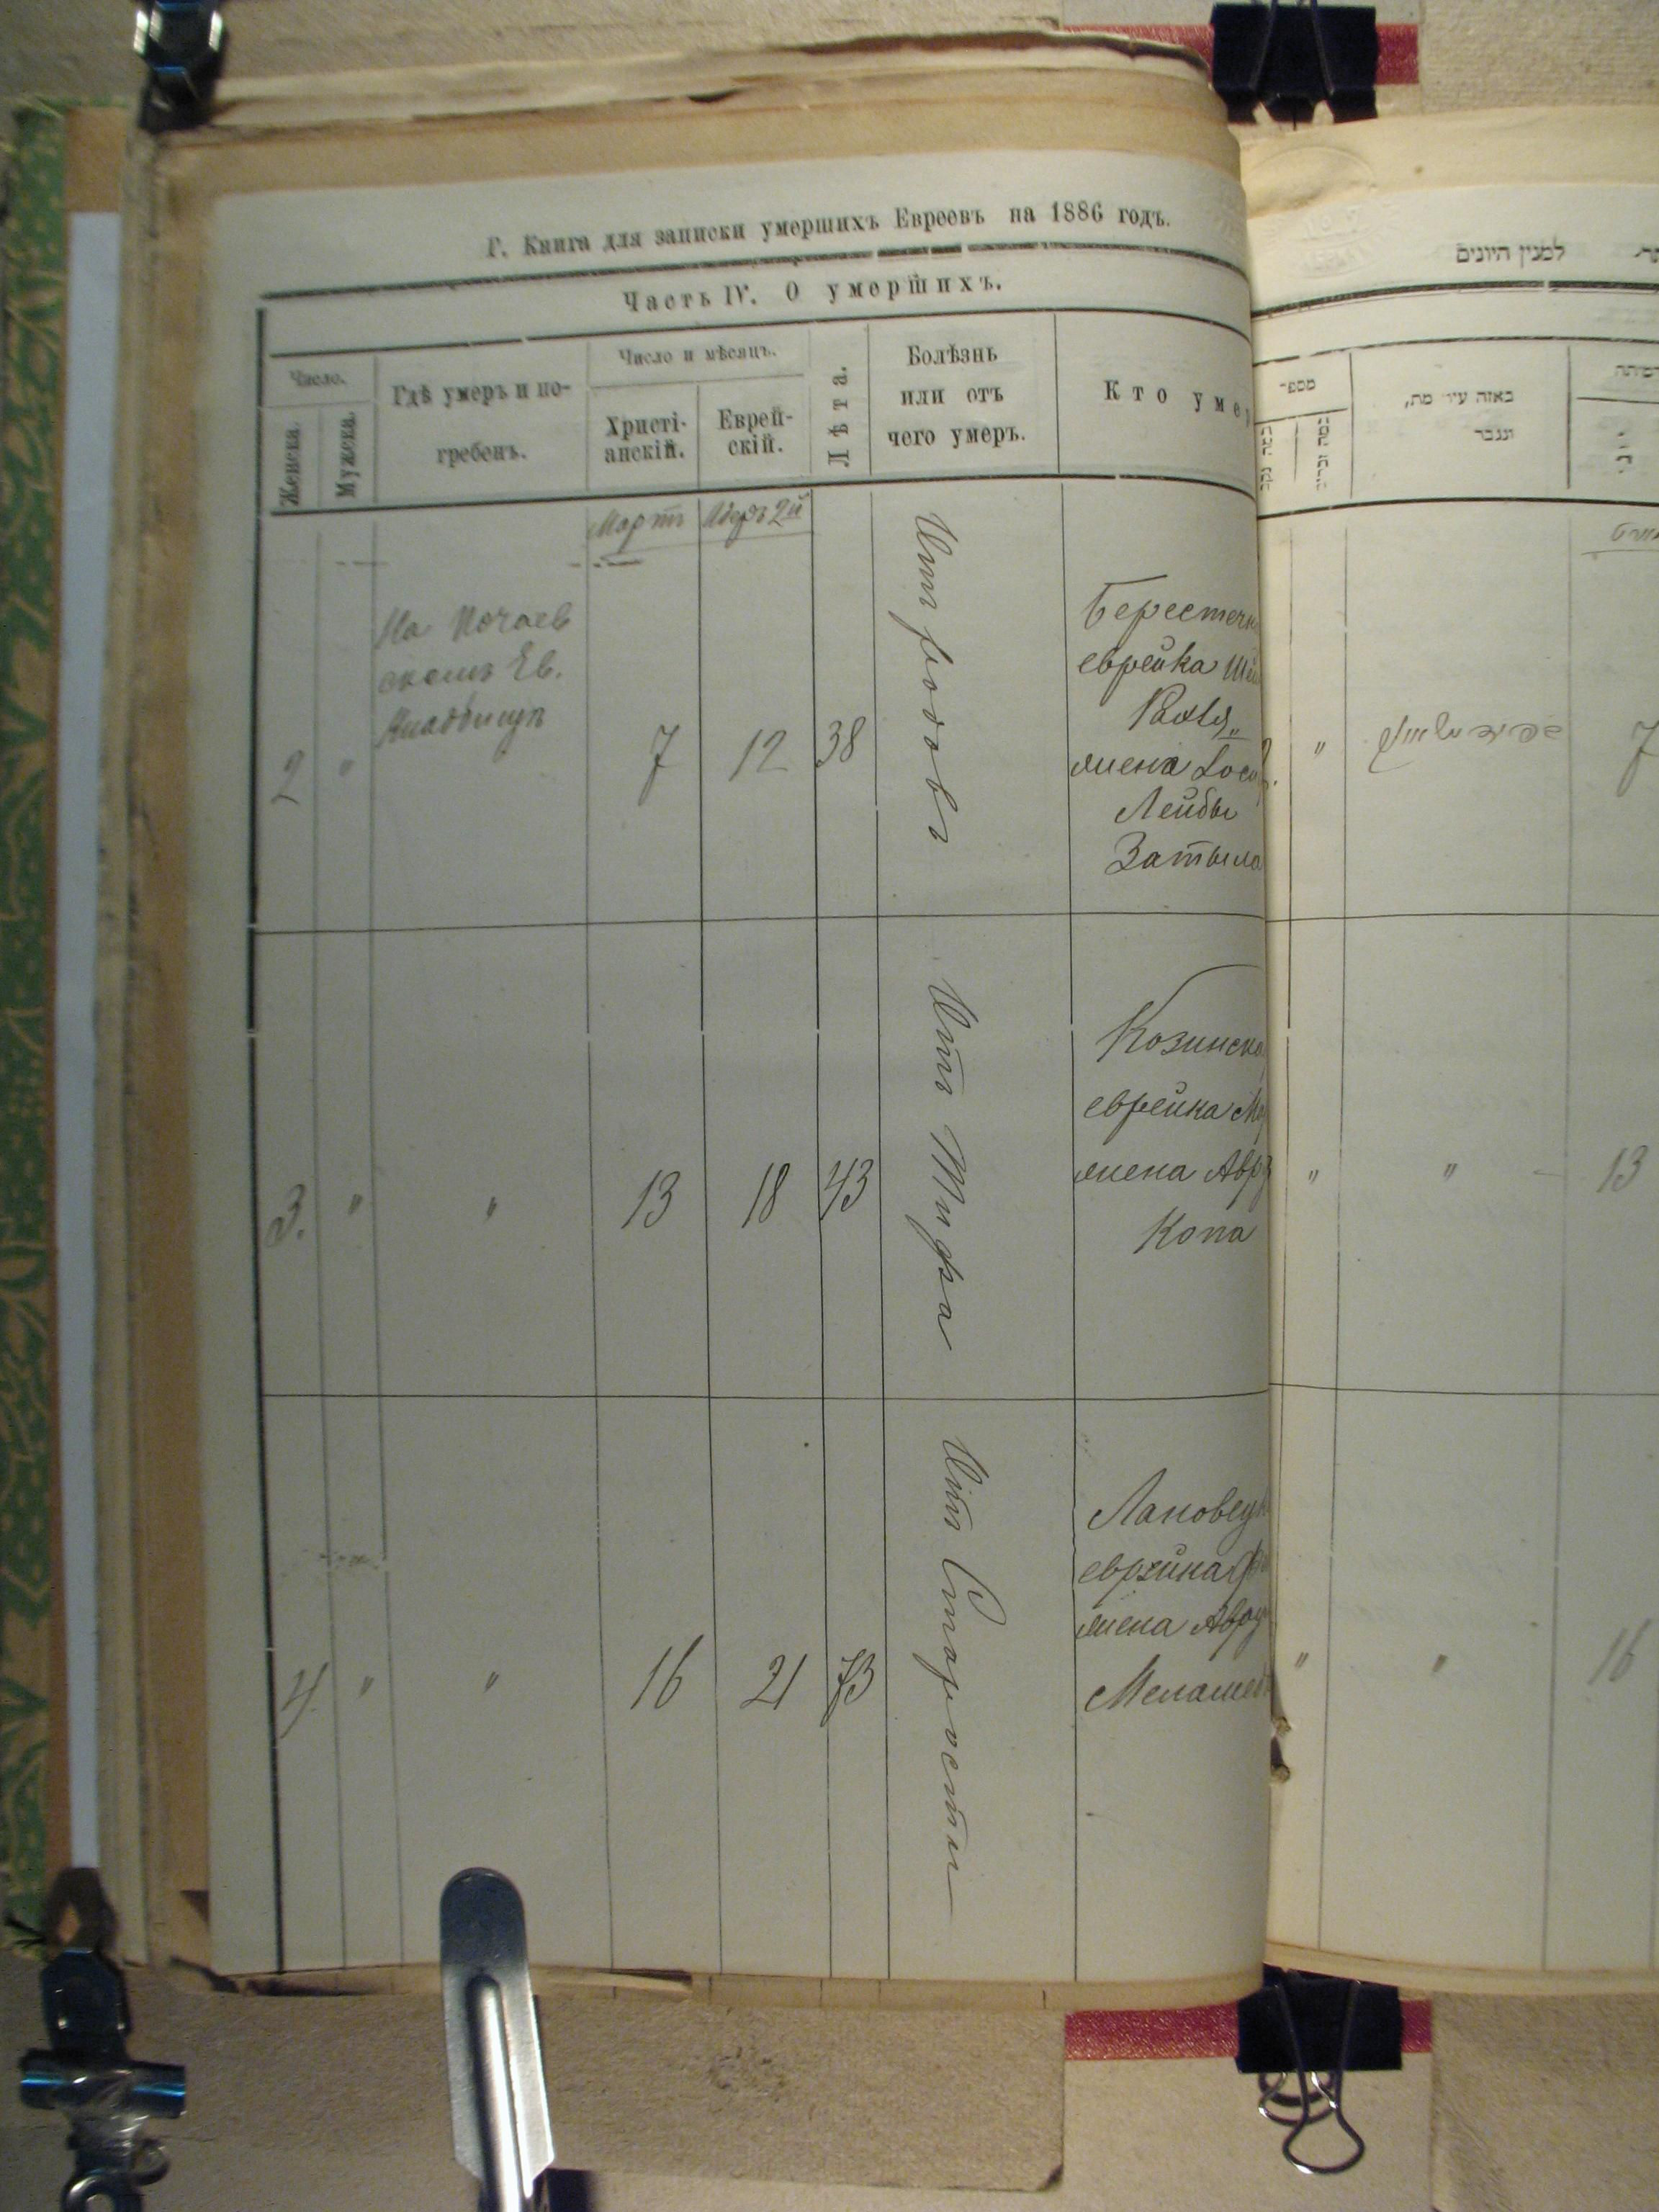 Г. Книга для записки умершихъ Евреевъ на 1886 годъ.
Часть IV. О умершихъ.
Число.
Женска.
Мужеска.
Гдѣ умеръ и по-
гребенъ.
Число и мѣсяцъ.
Христі-
анскій.
Еврей-
скій.
Лѣта.
Болѣзнь
или отъ
чего умеръ.
Кто умер
Мартъ Адеръ 2й
2 " На Почаев
скомъ Ев.
Кладбищѣ
7 12 38
Отъ родовъ
Берестечк
еврейка Ше
Рахля
жена Іос
Лейбы
Затыла
3. " " 13 18 43
Отъ Тифа
Козинска
еврейка М
жена Авр
Копа
4. " " 16 21 73
Отъ Старости
Лановец
еврейка
жена Авр
Менаше
למנין היונים
מספר
באזה עיר מת,
ונגבר
" 7
" " 13
" " 16